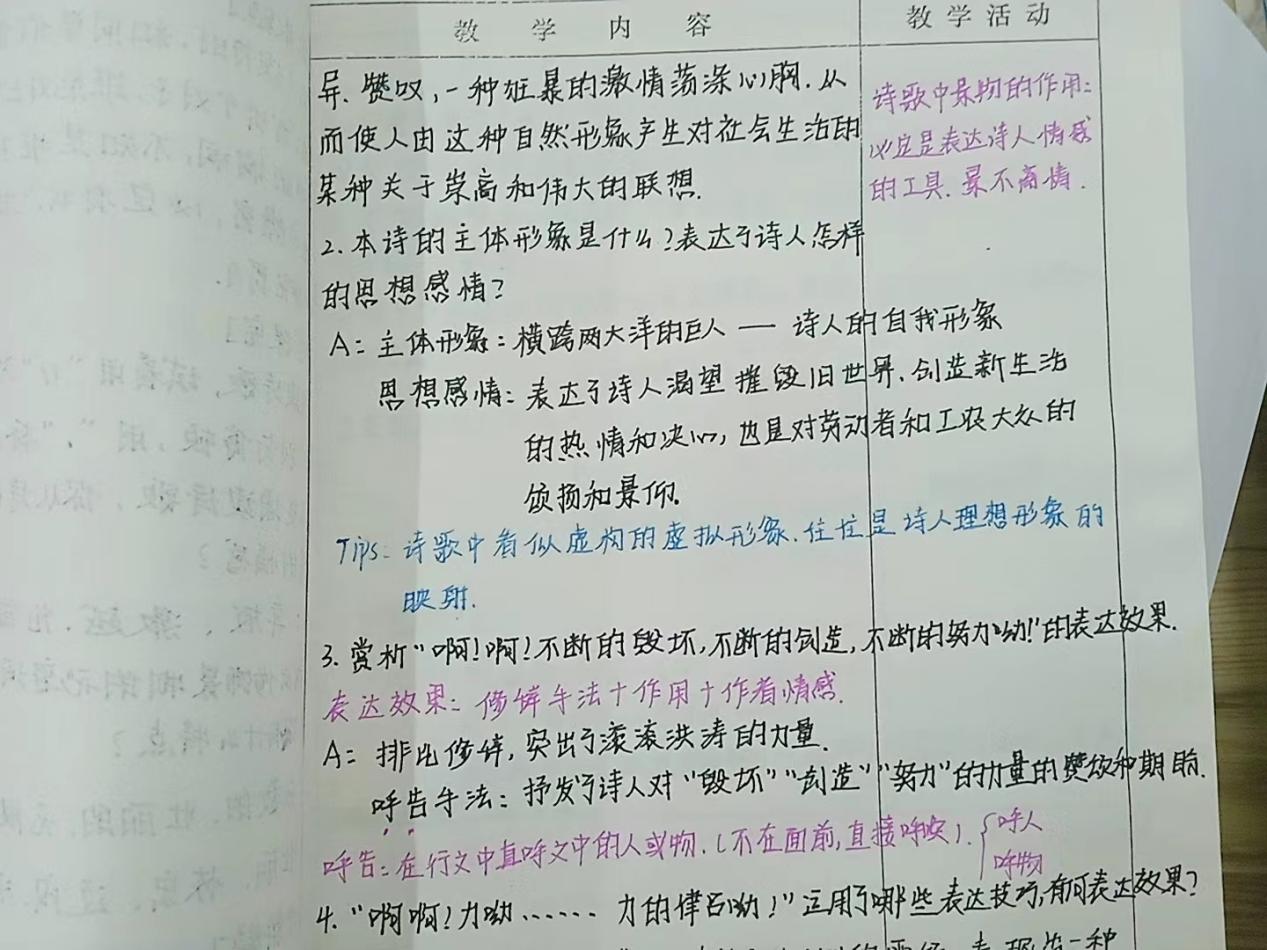 教 学 内 容
教 学 活 动
异、赞叹,一种狂暴的激情荡涤心胸.从
而使人由这种自然形象产生对社会生活的
某种关于崇高和伟大的联想.
诗歌中景物的作用:
必定是表达诗人情感
的工具.景不离情.
2.本诗的主体形象是什么?表达了诗人怎样
的思想感情?
A: 主体形象:横跨两大洋的巨人 — 诗人的自我形象
思想感情:表达了诗人渴望摧毁旧世界、创造新生活
的热情和决心,也是对劳动者和工农大众的
颂扬和景仰.
Tips: 诗歌中看似虚构的虚拟形象.往往是诗人理想形象的
映射.
3.赏析"啊!啊!不断的毁坏,不断的创造,不断的努力呦!"的表达效果.
表达效果:修辞手法+作用+作者情感.
A: 排比修辞,突出了滚滚洪涛的力量.
呼告手法:抒发了诗人对"毁坏""创造""努力"的力量的赞颂和期盼.
呼告:在行文中直呼文中的人或物.(不在面前,直接呼唤).{呼人
呼物
4."啊啊!力呦…… 力的律吕呦!"运用了哪些表达技巧,有何表达效果?